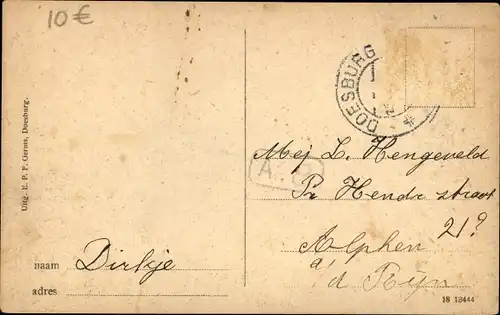 10€
DOESBURG
Mej L. Hengeveld
Pr Hendr straat
21?
Alphen
a/d Rijn
Uitg. E. P. F. Gerrits, Doesburg.
naam Dirkje
adres
18 13444